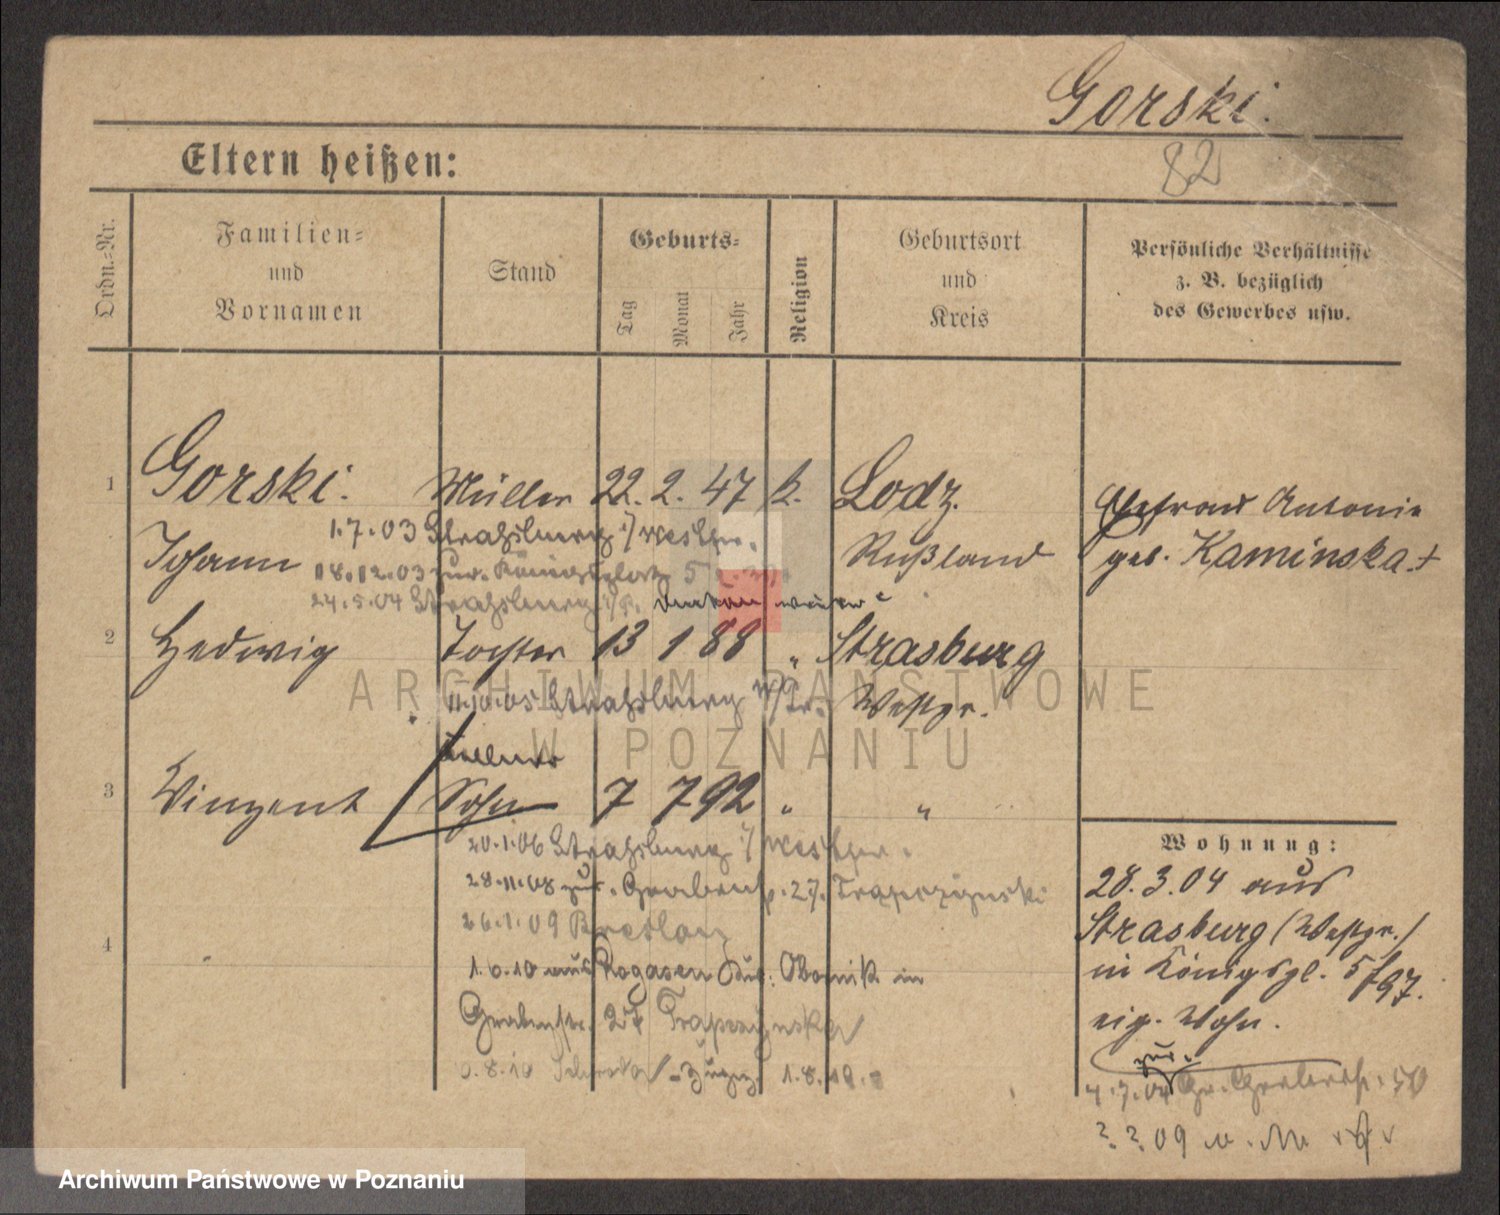 Gorski.
82
Eltern heißen:
Ordn.-Nr.
Familien-
und
Vornamen
Stand
Geburts-
Tag
Monat
Jahr
Religion
Geburtsort
und
Kreis
Persönliche Verhältnisse
z. B. bezüglich
des Gewerbes usw.
1 Gorski. Müller 22. 2. 47 k. Lodz. Ehefrau Antonie
1.7.03 Strasburg i/Westpr.
Johann Rußland geb. Kaminska +
18.12.03 zur. Königsplatz 5
24.5.04 Strasburg
2 Hedwig Tochter 13 1 88 " Strasburg
11.10.05 Strasburg W/Pr. Westpr.
Kellner
3 Vinzent Sohn 7 7 92 " "
Wohnung:
20.1.06 Strasburg i/Westpr.
28.11.08 zur. Grabenstr. 27. Trapczynski
26.1.09 Breslau
4
1.6.10 aus Rogasen Obornik in
Grabenstr. 27 Trapczynska
.8.10 1.8.10
28.3.04 aus
Strasburg (Westpr.)
in Königspl. 5
eig. Wohn.
zur.
4.7.04 Gr. Gerberstr. 50
09
ARCHIWUM PAŃSTWOWE
W POZNANIU
Archiwum Państwowe w Poznaniu